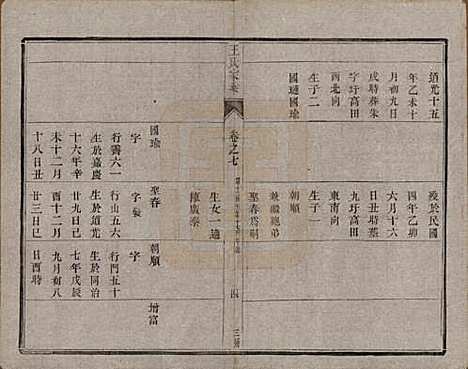 道光十五
年乙未十
月初九日
戌時葬朱
字圩高田
西北向
生子二
國璉國瑜
歿於民國
四年乙卯
六月十六
日丑時葬
九圩高田
東南向
生子一
朝順
兼繼胞弟
聖春為嗣
生女一適
陳廣泰
王氏家乘
卷之七
四
國瑜
行霄六一
字
生於嘉慶
十六年辛
未十二月
十八日丑
聖春
行山五六
字
生於道光
廿九日己
酉十二月
廿三日巳
朝順
行門五十
字
生於同治
七年戊辰
九月初八
日酉時
增富